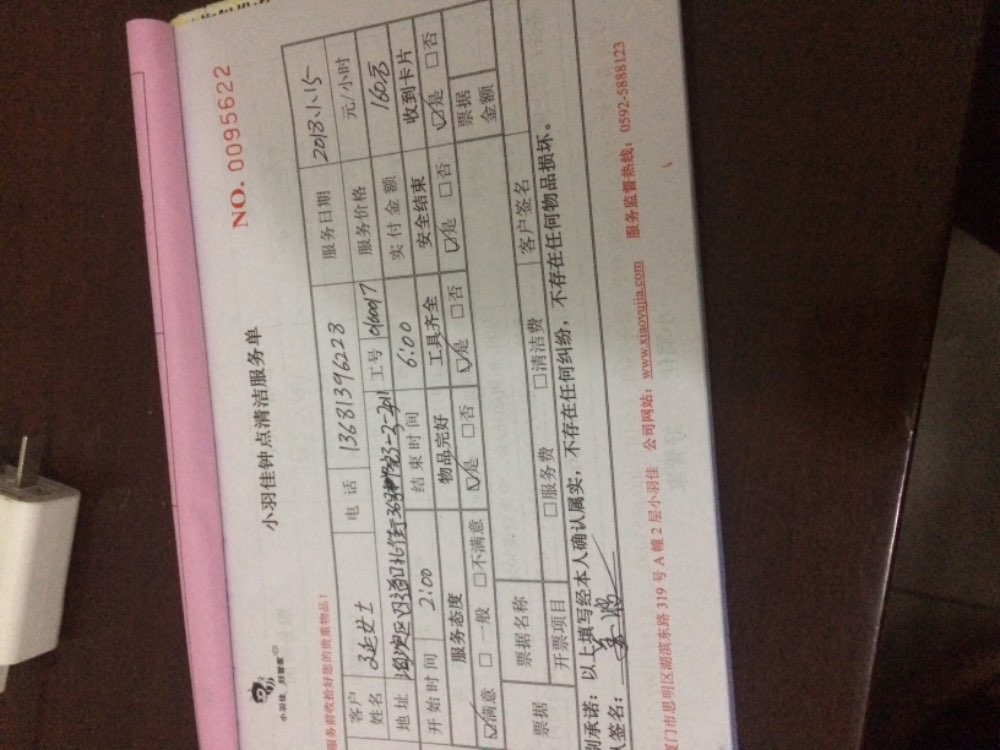 小羽佳 好管家
小羽佳钟点清洁服务单
NO. 0095622
服务前收拾好您的贵重物品!
客户姓名 女士 电话 13681396223 服务日期 2018.1.15
地址 工号 服务价格 元/小时
开始时间 2:00 结束时间 6:00 实付金额 160元
服务态度 物品完好 工具齐全 安全结束 收到卡片
☑满意 □一般 □不满意 ☑是 □否 ☑是 □否 ☑是 □否 ☑是 □否
票据 票据名称 票据金额
开票项目 □服务费 □清洁费 客户签名
别承诺:以上填写经本人确认属实,不存在任何纠纷,不存在任何物品损坏。
人签名:
厦门市思明区湖滨东路 319 号 A 幢 2 层小羽佳 公司网站:www.xiaoyujia.com 服务监督热线:0592-5888123